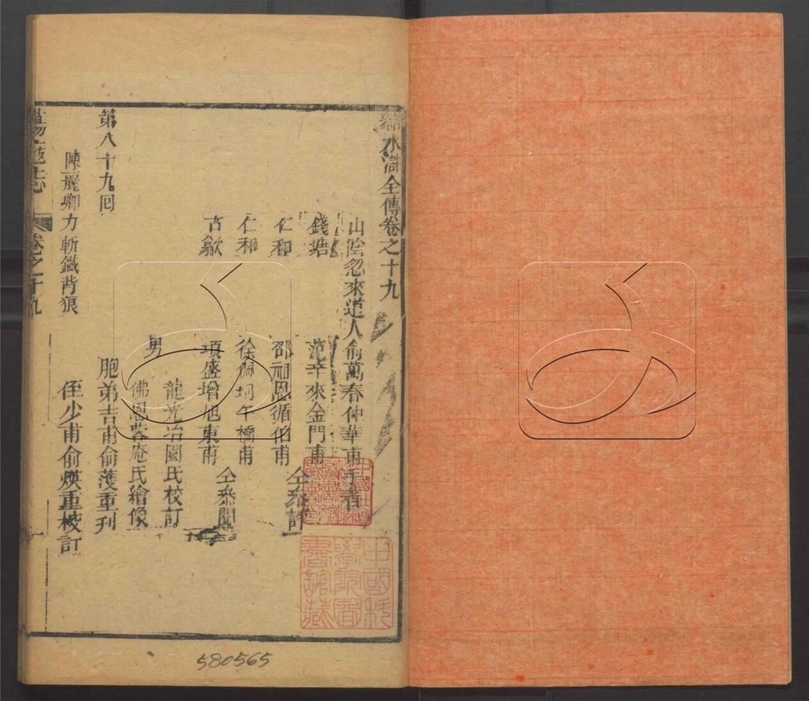 結水滸全傳卷之十九
山陰忽來道人俞萬春仲華甫手著
錢塘 范辛來金門甫
仁和 邵祖恩循伯甫 仝參訂
仁和 徐佩珂午橋甫
古歙 項盛增旭東甫 仝參閱
男 龍光冶園氏校訂
佛恩蓉菴氏繪像
胞弟吉甫俞蒦重刊
侄少甫俞煐重校訂
第八十九回
陳麗卿力斬鐵背狼
蕩寇志 卷之十九
580565